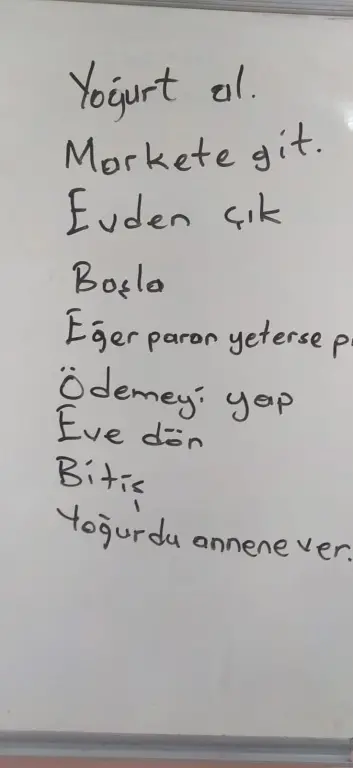 Yoğurt al.
Markete git.
Evden çık
Başla
Eğer paran yeterse
Ödemeyi yap
Eve dön
Bitiş
Yoğurdu annene ver.